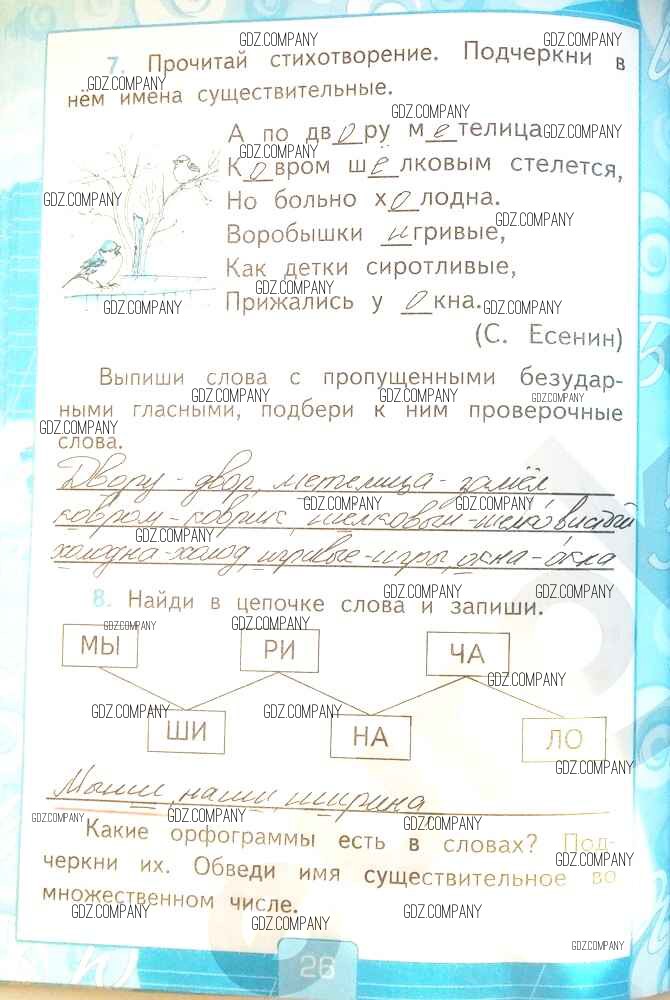 7. Прочитай стихотворение. Подчеркни в
нём имена существительные.
А по двору метелица
Ковром шёлковым стелется,
Но больно холодна.
Воробышки игривые,
Как детки сиротливые,
Прижались у окна.
(С. Есенин)
Выпиши слова с пропущенными безудар-
ными гласными, подбери к ним проверочные
слова.
Двору - двор, метелица - замёл
ковром - коврик, шелковый -
холодна - холод, игривые - игры, окна - окна
8. Найди в цепочке слова и запиши.
МЫ РИ ЧА
ШИ НА ЛО
Мыши, наши, ширина
Какие орфограммы есть в словах? Под-
черкни их. Обведи имя существительное во
множественном числе.
26
GDZ.COMPANY